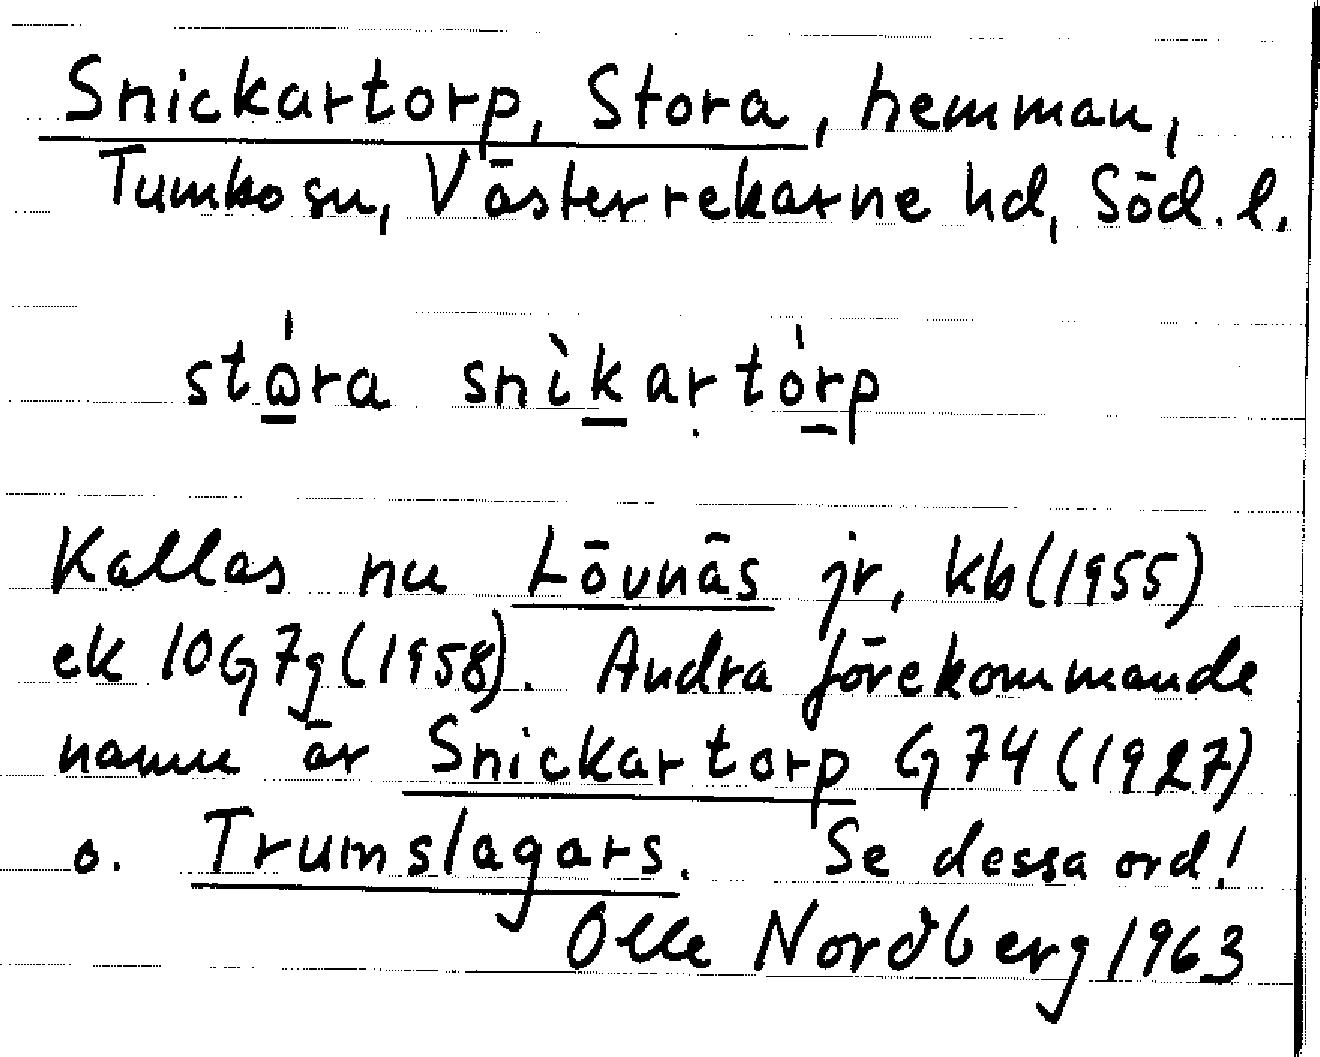 Snickartorp, Stora, hemman,
Tumbo sn, Västerrekarne hd, Söd. l.
stóra snìkartórp
Kallas nu Lövnäs jr, kb (1955)
ek 10G7g (1958). Andra förekommande
namn är Snickartorp G74 (1927)
o. Trumslagars. Se dessa ord!
Olle Nordberg 1963